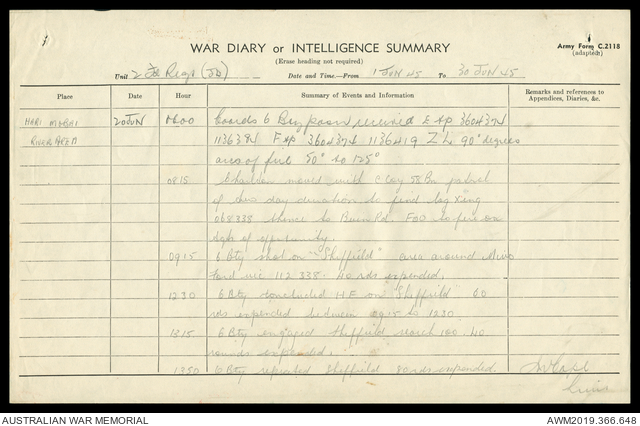 WAR DIARY or INTELLIGENCE SUMMARY
Army Form C.2118
(Erase heading not required)
(adapted)
Unit 2 Fd Regt Date and Time—From 1 JUN 45 To 30 JUN 45
Place Date Hour Summary of Events and Information Remarks and references to Appendices, Diaries, &c.
20 JUN 0600 6 Bty posn received 360437
RIVER AREA 113639 360437 1136419 ZL 90° degrees
area of fire 50° to 125°
0815 moved with C Coy 58 Bn patrol
of two day duration to find
068338 thence to Buin Rd. FOO to fire on
tgts of opportunity.
0915 6 Bty shot on "Sheffield" area around Mivo
Ford vic 112338. 40 rds expended.
1230 6 Bty concluded H.F on "Sheffield" 60
rds expended between 0915 to 1230.
1315 6 Bty engaged Sheffield search 100. 40
rounds expended.
1350 6 Bty repeated Sheffield 80 rds expended
AUSTRALIAN WAR MEMORIAL
AWM2019.366.648